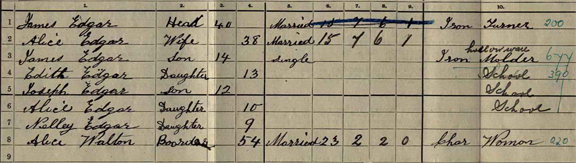 10.
1 James Edgar Head 40 Married 15 7 6 1 Iron Turner 200
2 Alice Edgar Wife 38 Married 15 7 6 1
3 James Edgar Son 14 Single Iron hullow ware Molder 677
4 Edith Edgar Daughter 13 School 390
5 Joseph Edgar Son 12 School
6 Alice Edgar Daughter 10 School
7 Nelley Edgar Daughter 9
8 Alice Walton Boarder 54 Married 23 2 2 0 Char Woman 220
9